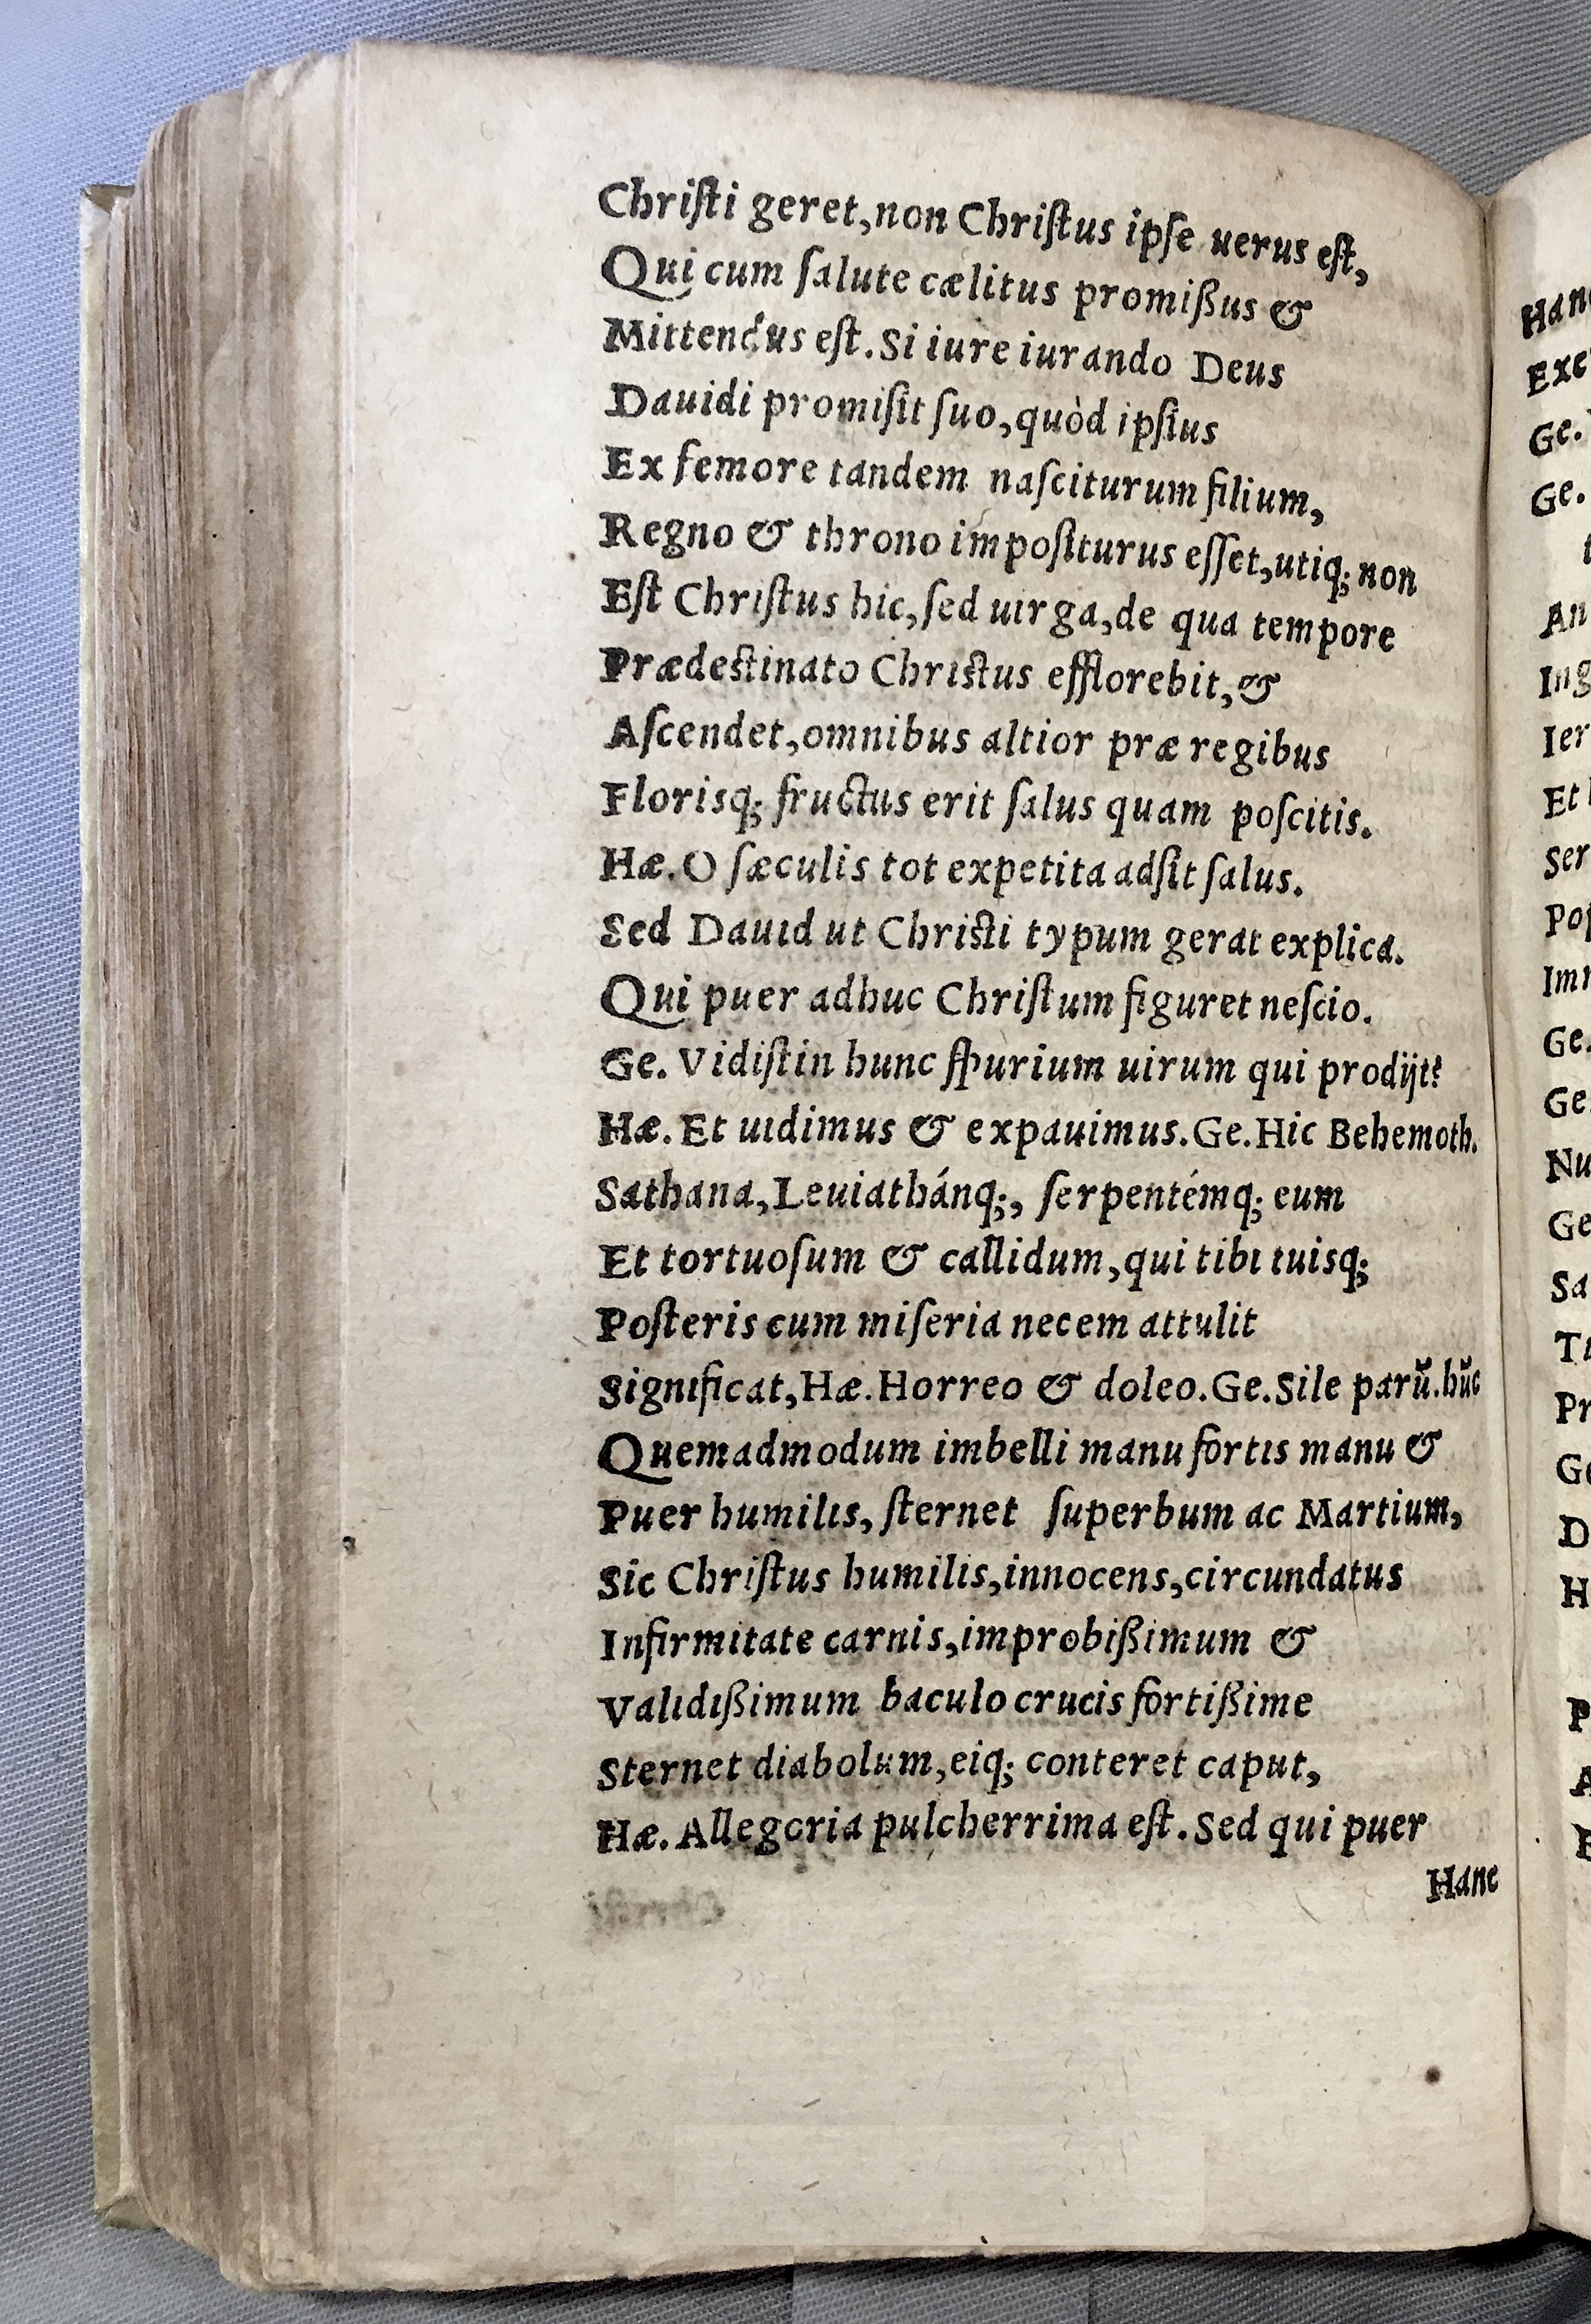 Chriſti geret, non Chriſtus ipſe uerus eſt,
Qui cum ſalute cælitus promißus &
Mittendus eſt. Si iure iurando Deus
Dauidi promiſit ſuo, quòd ipſius
Ex femore tandem naſciturum filium,
Regno & throno impoſiturus eſſet, utiq; non
Eſt Chriſtus hic, ſed uirga, de qua tempore
Prædeſtinato Chriſtus efflorebit, &
Aſcendet, omnibus altior præ regibus
Florisq; fructus erit ſalus quam poſcitis.
Hæ. O ſæculis tot expetita adſit ſalus.
Sed Dauid ut Chriſti typum gerat explica.
Qui puer adhuc Chriſtum figuret neſcio.
Ge. Vidiſtin hunc ſpurium uirum qui prodijt?
Hæ. Et uidimus & expauimus. Ge. Hic Behemoth.
Sathana, Leuiathánq;, ſerpentémq; eum
Et tortuoſum & callidum, qui tibi tuisq;
Poſteris cum miſeria necem attulit
Significat, Hæ. Horreo & doleo. Ge. Sile parũ. hũc
Quemadmodum imbelli manu fortis manu &
Puer humilis, ſternet ſuperbum ac Martium,
Sic Chriſtus humilis, innocens, circundatus
Infirmitate carnis, improbißimum &
Validißimum baculo crucis fortißime
Sternet diabolum, eiq; conteret caput,
Hæ. Allegoria pulcherrima eſt. Sed qui puer
Hanc
Ge.
Ge.
An
Ing
Ier
Et
Ser
Ge.
Ge
Nu
Ge
Sa
Pr
D
H
P